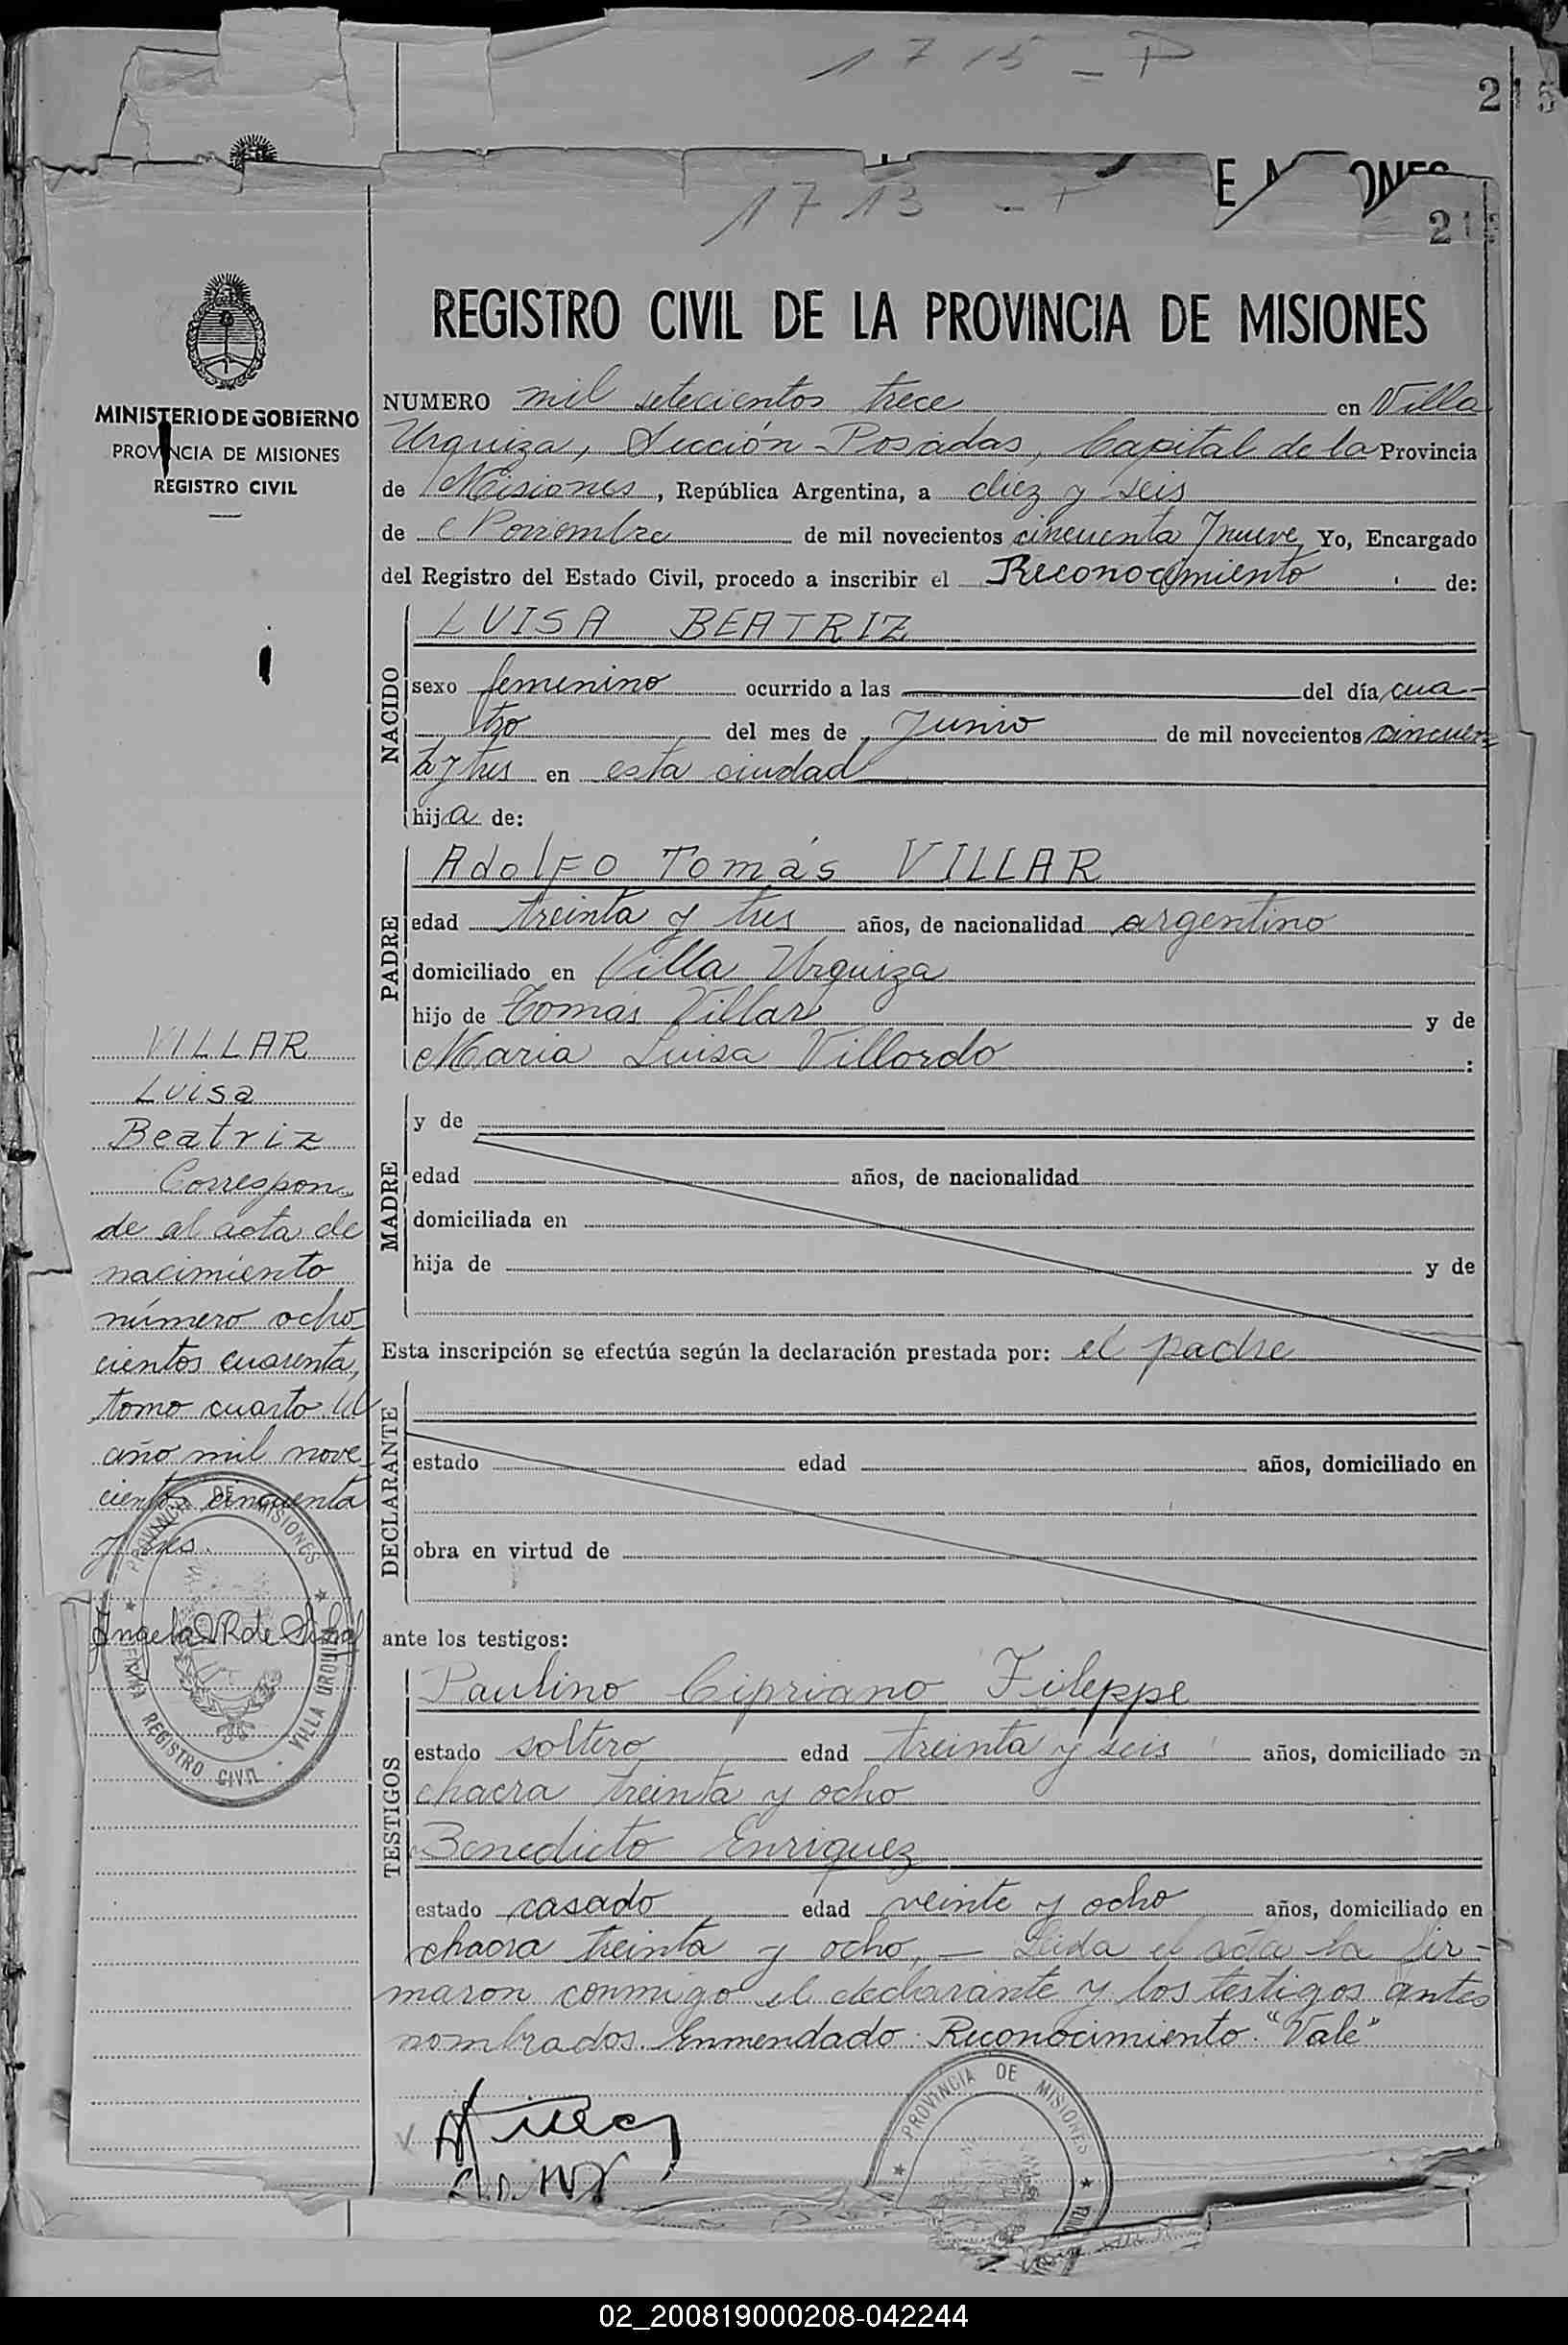 1715 - P
215
E
1713 - P
21
REGISTRO CIVIL DE LA PROVINCIA DE MISIONES
MINISTERIO DE GOBIERNO
PROVINCIA DE MISIONES
REGISTRO CIVIL
NUMERO mil setecientos trece en Villa
Urquiza, Sección Posadas, Capital de la Provincia
de Misiones, República Argentina, a diez y seis
de Noviembre de mil novecientos cincuenta y nueve Yo, Encargado
del Registro del Estado Civil, procedo a inscribir el Reconocimiento de:
NACIDO
LUISA BEATRIZ
sexo femenino ocurrido a las del día cua-
tro del mes de Junio de mil novecientos cincuen=
ta y tres en esta ciudad
hija de:
PADRE
Adolfo Tomás VILLAR
edad treinta y tres años, de nacionalidad argentino
domiciliado en Villa Urquiza
hijo de Tomás Villar y de
Maria Luisa Villordo :
MADRE
y de
edad años, de nacionalidad
domiciliada en
hija de y de
Esta inscripción se efectúa según la declaración prestada por: el padre
DECLARANTE
estado edad años, domiciliado en
obra en virtud de
ante los testigos:
TESTIGOS
Paulino Cipriano Fileppe
estado soltero edad treinta y seis años, domiciliado en
chacra treinta y ocho
Benedicto Enriquez
estado casado edad veinte y ocho años, domiciliado en
chacra treinta y ocho, — Leida el acta la fir-
maron conmigo el declarante y los testigos antes
nombrados. Enmendado: Reconocimiento. "Vale"
VILLAR
Luisa
Beatriz
Correspon-
de al acta de
nacimiento
número ocho-
cientos cuarenta,
tomo cuarto del
año mil nove-
cientos cincuenta
y tres.
PROVINCIA DE MISIONES
REGISTRO CIVIL · VILLA URQUIZA
PROVINCIA DE MISIONES
02_200819000208-042244